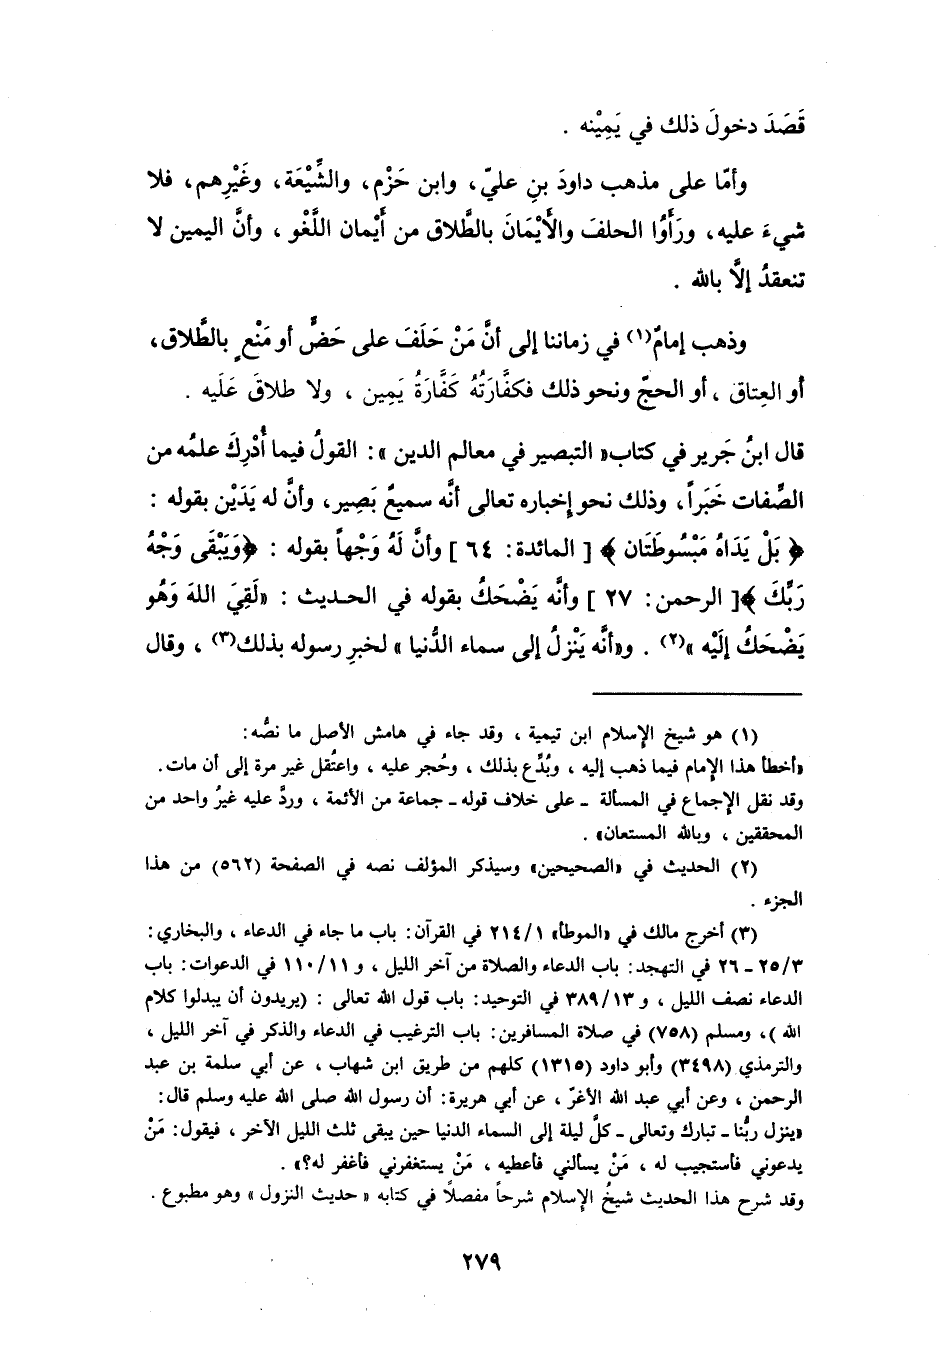 قَصَدَ دخولَ ذلك في يَمِيْنه .
وأمّا على مذهب داودَ بنِ عليّ، وابن حَزْم، والشِّيْعَة، وغَيْرِهم، فلا
شيءَ عليه، ورَأَوُا الحلفَ والأَيْمَانَ بالطَّلاق من أَيْمان اللَّغْو ، وأنَّ اليمين لا
تنعقدُ إلَّا بالله .
وذهب إمامٌ(١) في زماننا إلى أنَّ مَنْ حَلَفَ على حَضٍّ أو مَنْعٍ بالطَّلاق،
أو العِتاق ، أو الحجّ ونحو ذلك فكفَّارَتُهُ كَفَّارَةُ يَمِين ، ولا طلاقَ عَلَيه .
قال ابنُ جَرير في كتاب« التبصير في معالم الدين »: القولُ فيما أُدْرِكَ علمُه من
الصِّفات خَبَراً، وذلك نحو إخباره تعالى أنَّه سميعٌ بَصِير، وأنَّ له يَدَيْن بقوله :
﴿ بَلْ يَدَاهُ مَبْسُوطَتَان ﴾ [ المائدة: ٦٤ ] وأنَّ لَهُ وَجْهاً بقوله : ﴿وَيَبْقَى وَجْهُ
رَبِّكَ ﴾[ الرحمن: ٢٧ ] وأنَّه يَضْحَكُ بقوله في الحديث : «لَقِيَ اللهَ وَهُو
يَضْحَكُ إلَيْه »(٢) . و«أنَّه يَنْزلُ إلى سماء الدُّنيا » لخبرِ رسوله بذلك(٣) ، وقال
(١) هو شيخ الإسلام ابن تيمية ، وقد جاء في هامش الأصل ما نصُّه:
«أخطأ هذا الإمام فيما ذهب إليه ، وبُدِّع بذلك ، وحُجر عليه ، واعتُقل غير مرة إلى أن مات.
وقد نقل الإجماع في المسألة ـ على خلاف قوله ـ جماعة من الأئمة ، وردَّ عليه غيرُ واحد من
المحققين ، وبالله المستعان» .
(٢) الحديث في «الصحيحين» وسيذكر المؤلف نصه في الصفحة (٥٦٢) من هذا
الجزء .
(٣) أخرج مالك في «الموطأ» ٢١٤/١ في القرآن: باب ما جاء في الدعاء ، والبخاري:
٢٥/٣ ـ ٢٦ في التهجد: باب الدعاء والصلاة من آخر الليل ، و ١١٠/١١ في الدعوات: باب
الدعاء نصف الليل ، و ٣٨٩/١٣ في التوحيد: باب قول الله تعالى : (يريدون أن يبدلوا كلام
الله )، ومسلم (٧٥٨) في صلاة المسافرين: باب الترغيب في الدعاء والذكر في آخر الليل ،
والترمذي (٣٤٩٨) وأبو داود (١٣١٥) كلهم من طريق ابن شهاب ، عن أبي سلمة بن عبد
الرحمن ، وعن أبي عبد الله الأغرّ ، عن أبي هريرة: أن رسول الله صلى الله عليه وسلم قال:
«ينزل ربُّنا ـ تبارك وتعالى ـ كلَّ ليلة إلى السماء الدنيا حين يبقى ثلث الليل الآخر ، فيقول: مَنْ
يدعوني فأستجيب له ، مَنْ يسألني فأعطيه ، مَنْ يستغفرني فأغفر له؟» .
وقد شرح هذا الحديث شيخُ الإسلام شرحاً مفصلًا في كتابه « حديث النزول » وهو مطبوع .
٢٧٩